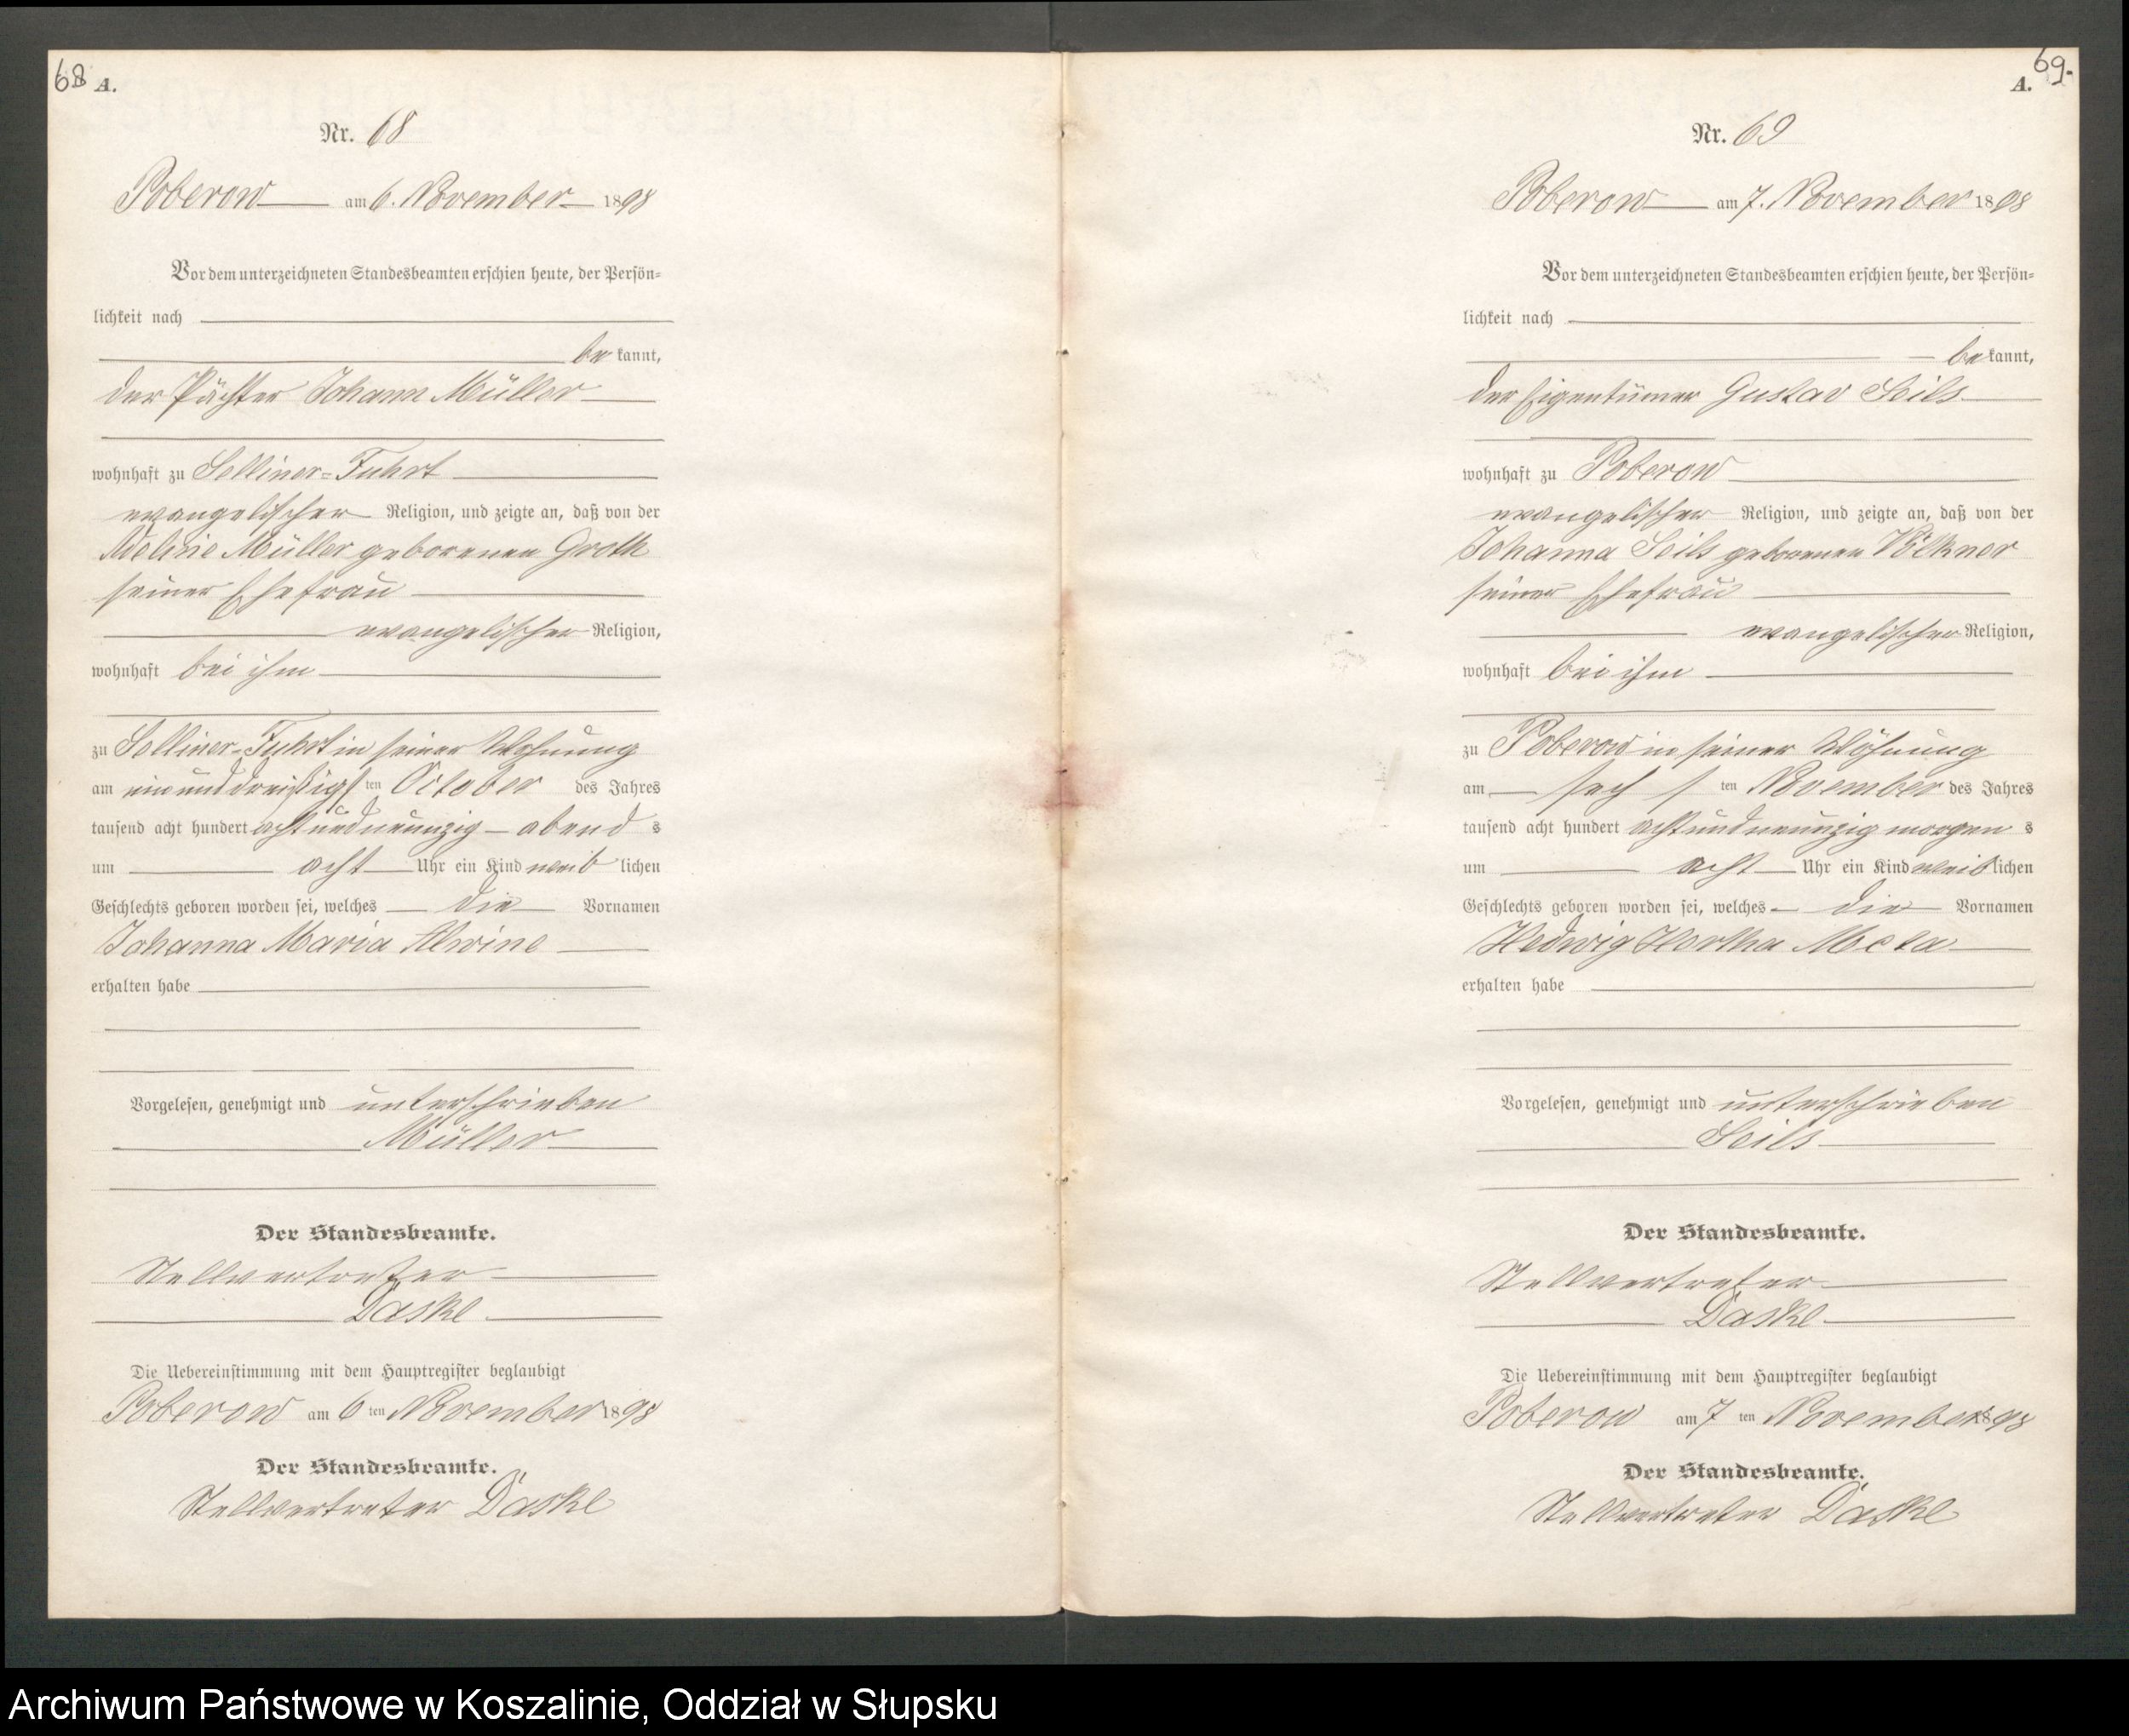 68 A.
Nr. 68
Poberow am 6. November 1898
Vor dem unterzeichneten Standesbeamten erschien heute, der Persön-
lichkeit nach
be kannt,
der Pächter Johann Müller
wohnhaft zu Selliner-Fuhrt
evangelischer Religion, und zeigte an, daß von der
Adeline Müller geborenen Groth
seiner Ehefrau
evangelischer Religion,
wohnhaft bei ihm
zu Selliner-Fuhrt in seiner Wohnung
am einunddreißigs ten October des Jahres
tausend acht hundert achtundneunzig abend s
um acht Uhr ein Kind weib lichen
Geschlechts geboren worden sei, welches die Vornamen
Johanna Maria Alwine
erhalten habe
Vorgelesen, genehmigt und unterschrieben
Müller
Der Standesbeamte.
Stellvertreter
Daske
Die Uebereinstimmung mit dem Hauptregister beglaubigt
Poberow am 6 ten November 1898
Der Standesbeamte.
Stellvertreter Daske
69.
A.
Nr. 69
Poberow am 7. November 1898
Vor dem unterzeichneten Standesbeamten erschien heute, der Persön-
lichkeit nach
be kannt,
der Eigentümer Gustav Seils
wohnhaft zu Poberow
evangelischer Religion, und zeigte an, daß von der
Johanna Seils geborenen Völkner
seiner Ehefrau
evangelischer Religion,
wohnhaft bei ihm
zu Poberow in seiner Wohnung
am sechs ten November des Jahres
tausend acht hundert achtundneunzig morgen s
um acht Uhr ein Kind weib lichen
Geschlechts geboren worden sei, welches die Vornamen
Hedwig Hertha Meta
erhalten habe
Vorgelesen, genehmigt und unterschrieben
Seils
Der Standesbeamte.
Stellvertreter
Daske
Die Uebereinstimmung mit dem Hauptregister beglaubigt
Poberow am 7 ten November 1898
Der Standesbeamte.
Stellvertreter Daske
Archiwum Państwowe w Koszalinie, Oddział w Słupsku